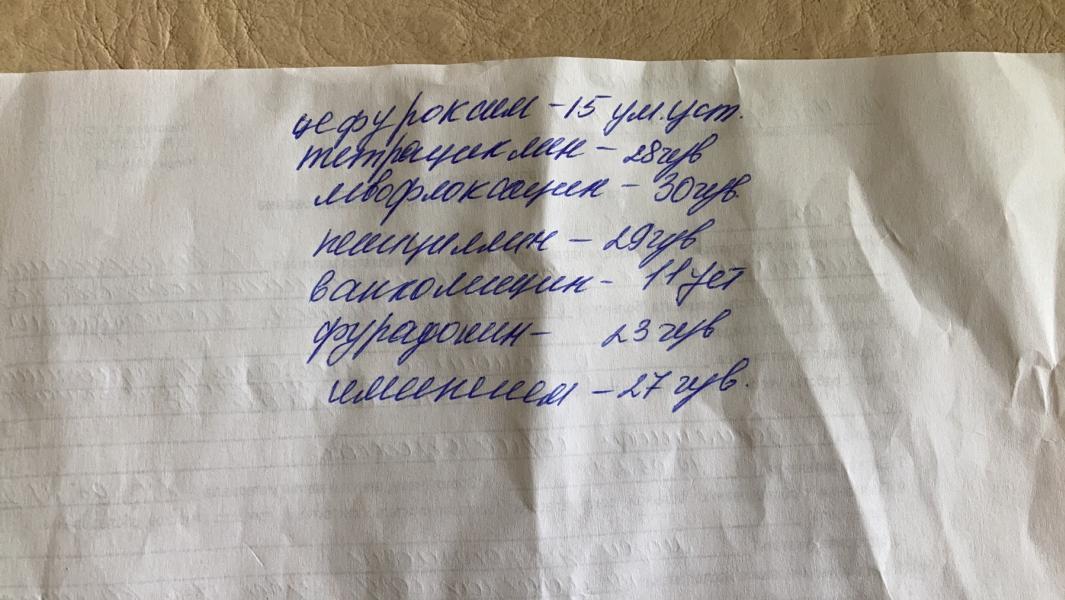 цефуроксим - 15 ум. уст.
тетрациклин - 28 чув
левофлоксацин - 30 чув.
пенициллин - 29 чув
ванкомицин - 11 уст
фурадонин - 23 чув
имипенем - 27 чув.